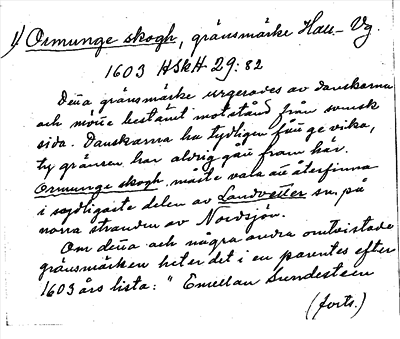 1) Ormunge skogh, gränsmärke Hall-Vg.
1603 HSkH 29:82
Deña gränsmärke urgerades av danskarna
och mötte bestämt motstånd från svensk
sida. Danskarna ha tydligen fått ge vika,
ty gränsen har aldrig gått fram här.
Ormunge skogh måste vara att återfinna
i sydligaste delen av Landvetter sn, på
norra stranden av Nordsjön.
Om deña och några andra omtvistade
gränsmärken heter det i en parentes efter
1603 års lista: " Emellan Sundesteen
(forts.)